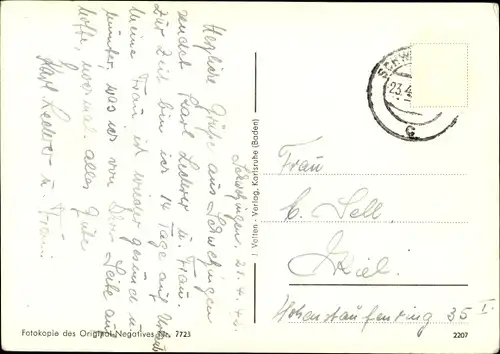 Schwetzingen
Herzliche Grüße aus Schwetzingen
sendet Karl Lederer u. Frau.
Zur Zeit bin ich 14 Tage auf Urlaub
Meine Frau ist wieder gesund u.
munter, was ich von Dir Liebe auch
hoffe, nochmal alles Gute
Karl Lederer u. Frau
I Velten - Verlag, Karlsruhe (Baden)
SCHW
23.4
C
Frau
C. Sell
Kiel
Hohenstaufenring 35 I.
Fotokopie des Original-Negatives Nr. 7723
2207